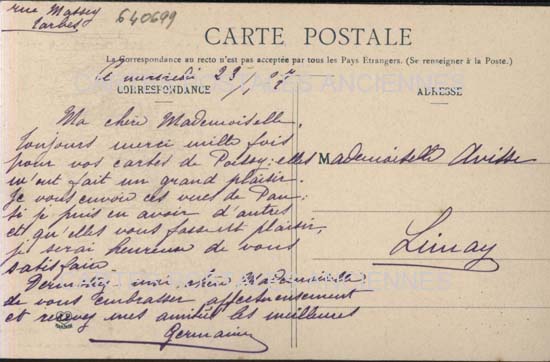 rue Massey
Tarbes
640699
CARTE POSTALE
La Correspondance au recto n'est pas acceptée par tous les Pays Etrangers. (Se renseigner à la Poste.)
Ce mercredi 23
CORRESPONDANCE
ADRESSE
Ma chère Mademoiselle,
toujours merci mille fois
pour vos cartes de Poissy; elles
m'ont fait un grand plaisir.
Je vous envoie ces vues de Pau;
si je puis en avoir d'autres
et qu'elles vous fassent plaisir,
je serai heureuse de vous
satisfaire
Permettez-moi chère Mademoiselle
de vous embrasser affectueusement
et recevez mes amitiés les meilleures
Germaine
Mademoiselle Avisse
Limay